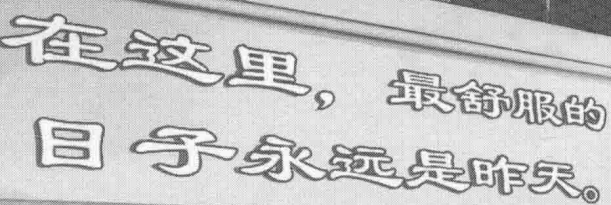 在这里，最舒服的
日子永远是昨天。